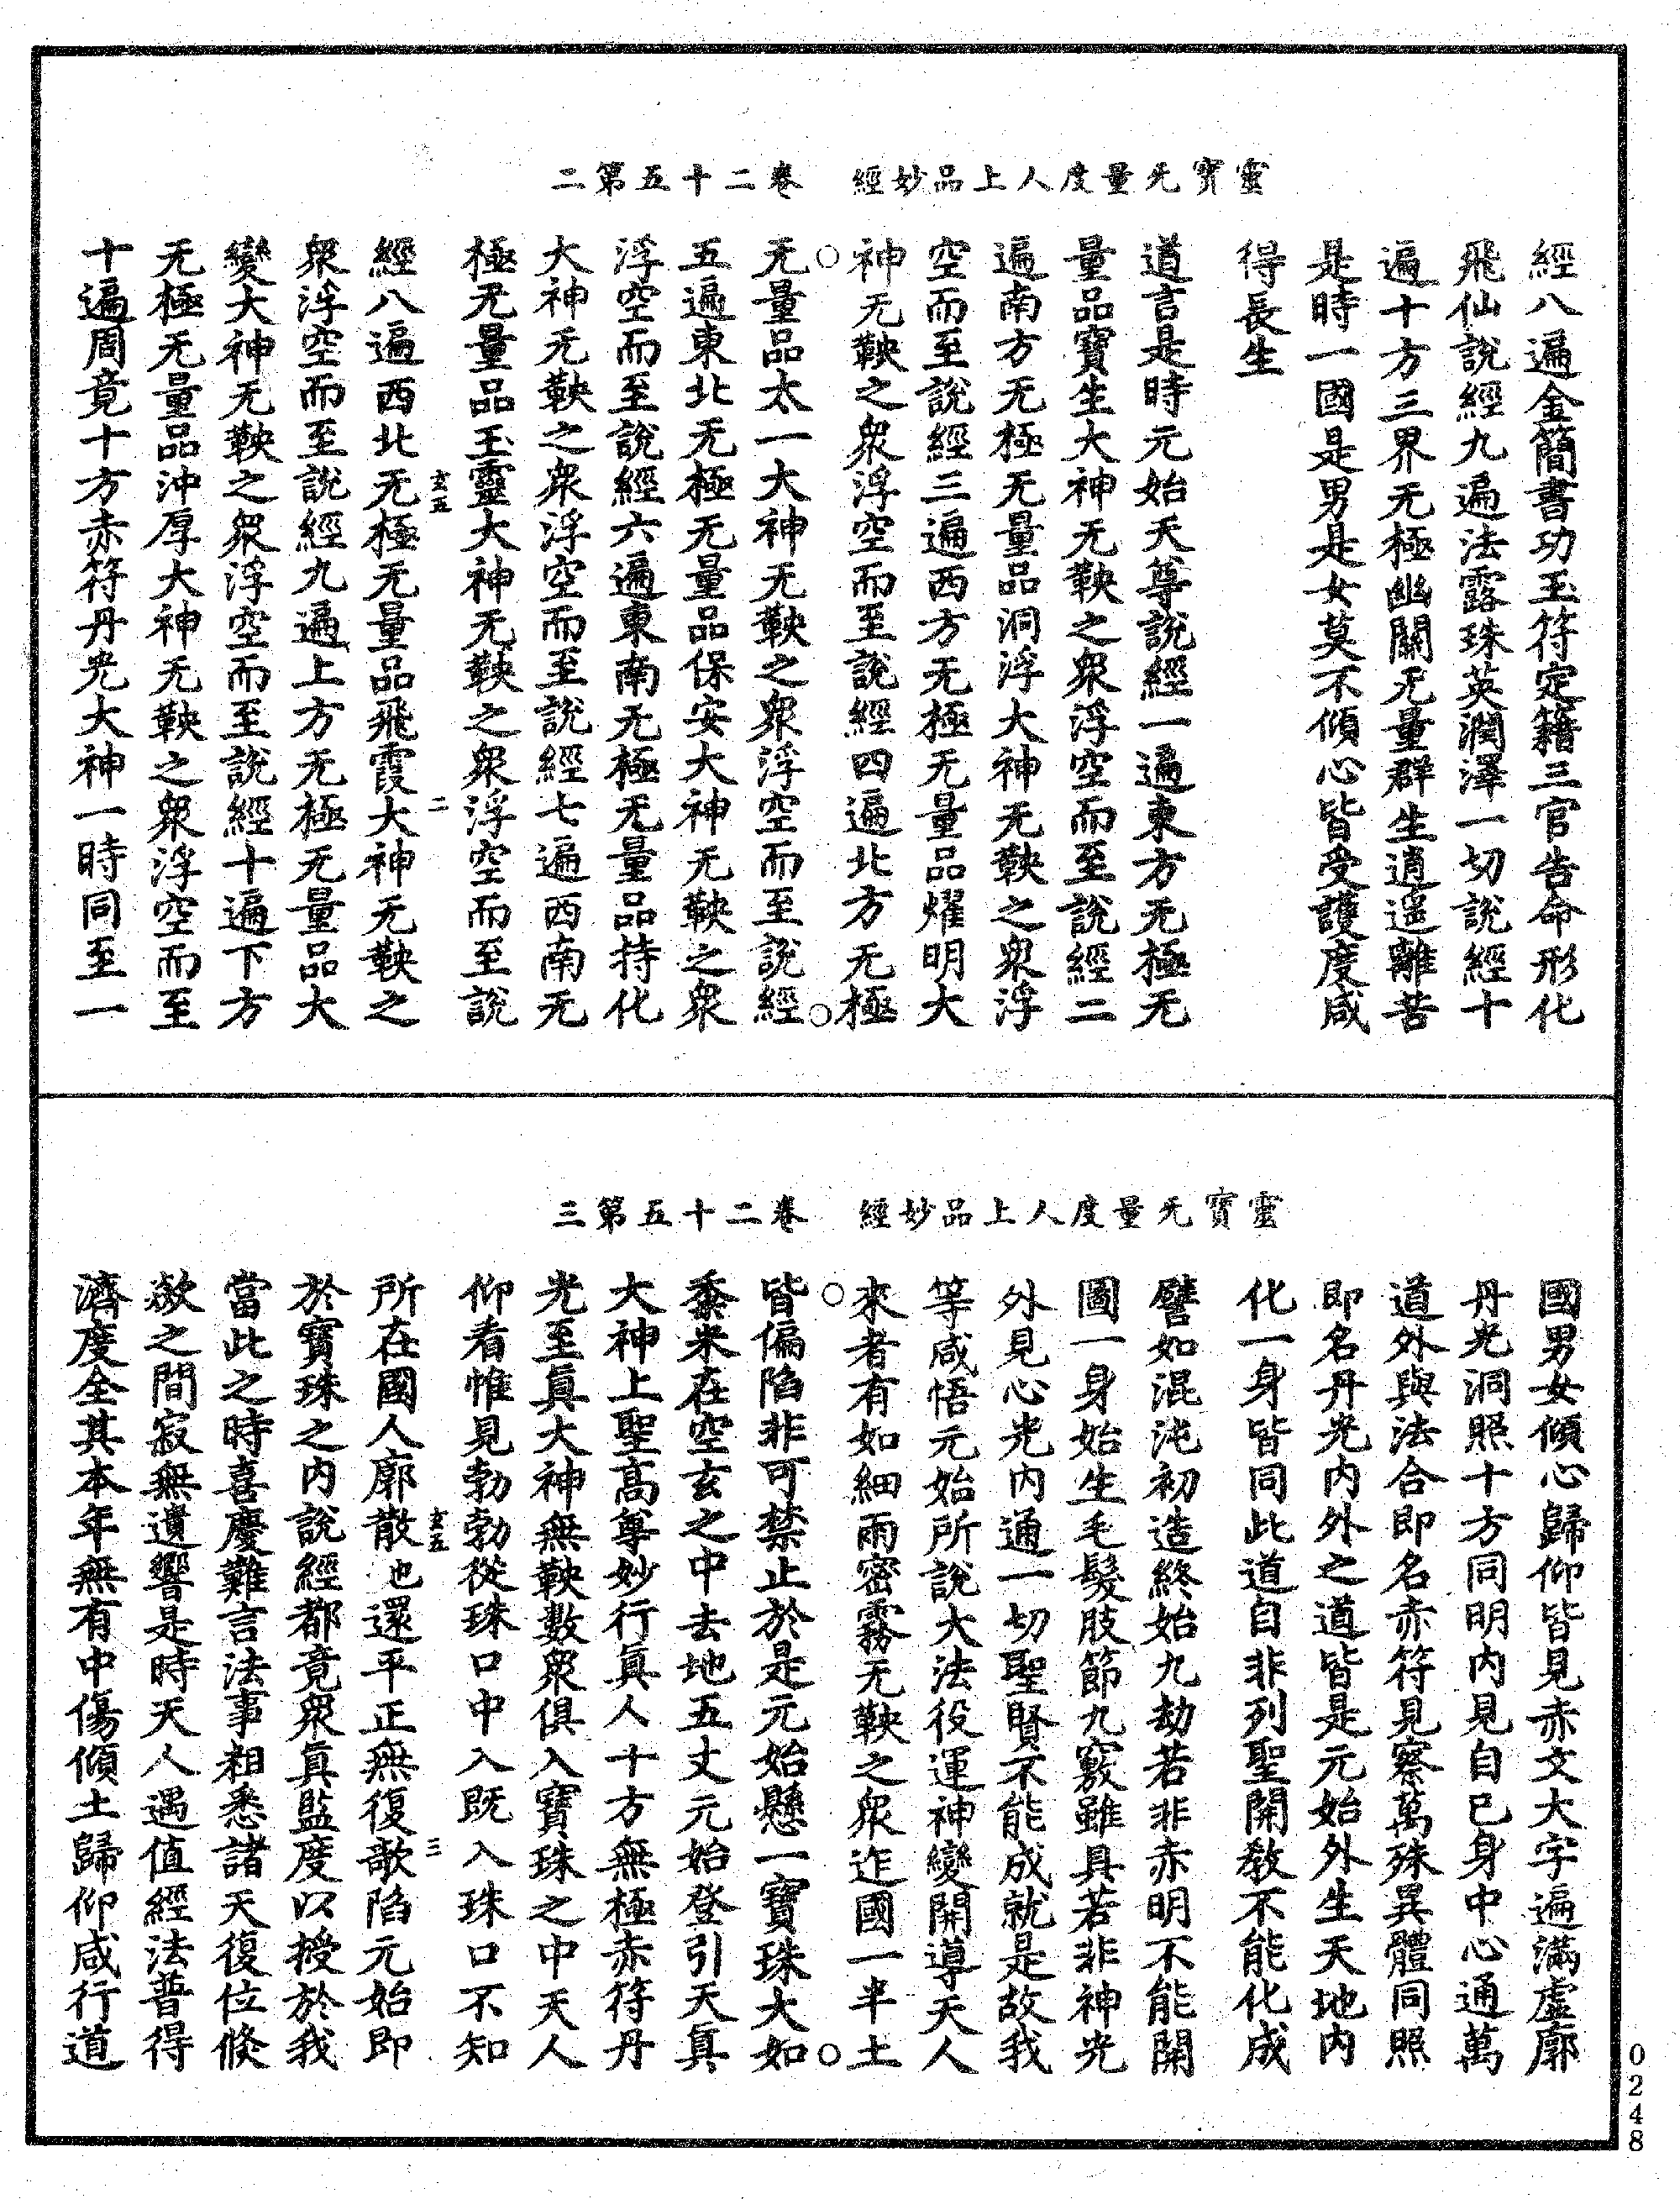 靈寶无量度人上品妙經　卷二十五第二
經八遍金簡書功玉符定籍三官告命形化
飛仙說經九遍法露珠英潤澤一切說經十
遍十方三界无極幽關无量群生逍遥離苦
是時一國是男是女莫不傾心皆受護度咸
得長生
道言是時元始天尊說經一遍東方无極无
量品寶生大神无鞅之衆浮空而至說經二
遍南方无極无量品洞浮大神无鞅之衆浮
空而至說經三遍西方无極无量品燿明大
神无鞅之衆浮空而至說經四遍北方无極
无量品太一大神无鞅之衆浮空而至說經
五遍東北无極无量品保安大神无鞅之衆
浮空而至說經六遍東南无極无量品持化
大神无鞅之衆浮空而至說經七遍西南无
極无量品玉靈大神无鞅之衆浮空而至說
玄五　二
經八遍西北无極无量品飛霞大神无鞅之
衆浮空而至說經九遍上方无極无量品大
變大神无鞅之衆浮空而至說經十遍下方
无極无量品沖厚大神无鞅之衆浮空而至
十遍周竟十方赤符丹光大神一時同至一
靈寶无量度人上品妙經　卷二十五第三
國男女傾心歸仰皆見赤文大字遍滿虛廓
丹光洞照十方同明內見自己身中心通萬
道外與法合即名赤符見察萬殊異體同照
即名丹光內外之道皆是元始外生天地內
化一身皆同此道自非列聖開教不能化成
譬如混沌初造終始九劫若非赤明不能開
圖一身始生毛髮肢節九竅雖具若非神光
外見心光內通一切聖賢不能成就是故我
等咸悟元始所說大法役運神變開導天人
來者有如細雨密霧无鞅之衆迮國一半土
皆偏陷非可禁止於是元始懸一寶珠大如
黍米在空玄之中去地五丈元始登引天真
大神上聖高尊妙行真人十方無極赤符丹
光至真大神無鞅數衆俱入寶珠之中天人
仰看惟見勃勃從珠口中入既入珠口不知
玄五　三
所在國人廓散也還平正無復敧陷元始即
於寶珠之內說經都竟衆真監度以授於我
當此之時喜慶難言法事粗悉諸天復位倏
歘之間寂無遺響是時天人遇值經法普得
濟度全其本年無有中傷傾土歸仰咸行道
0248